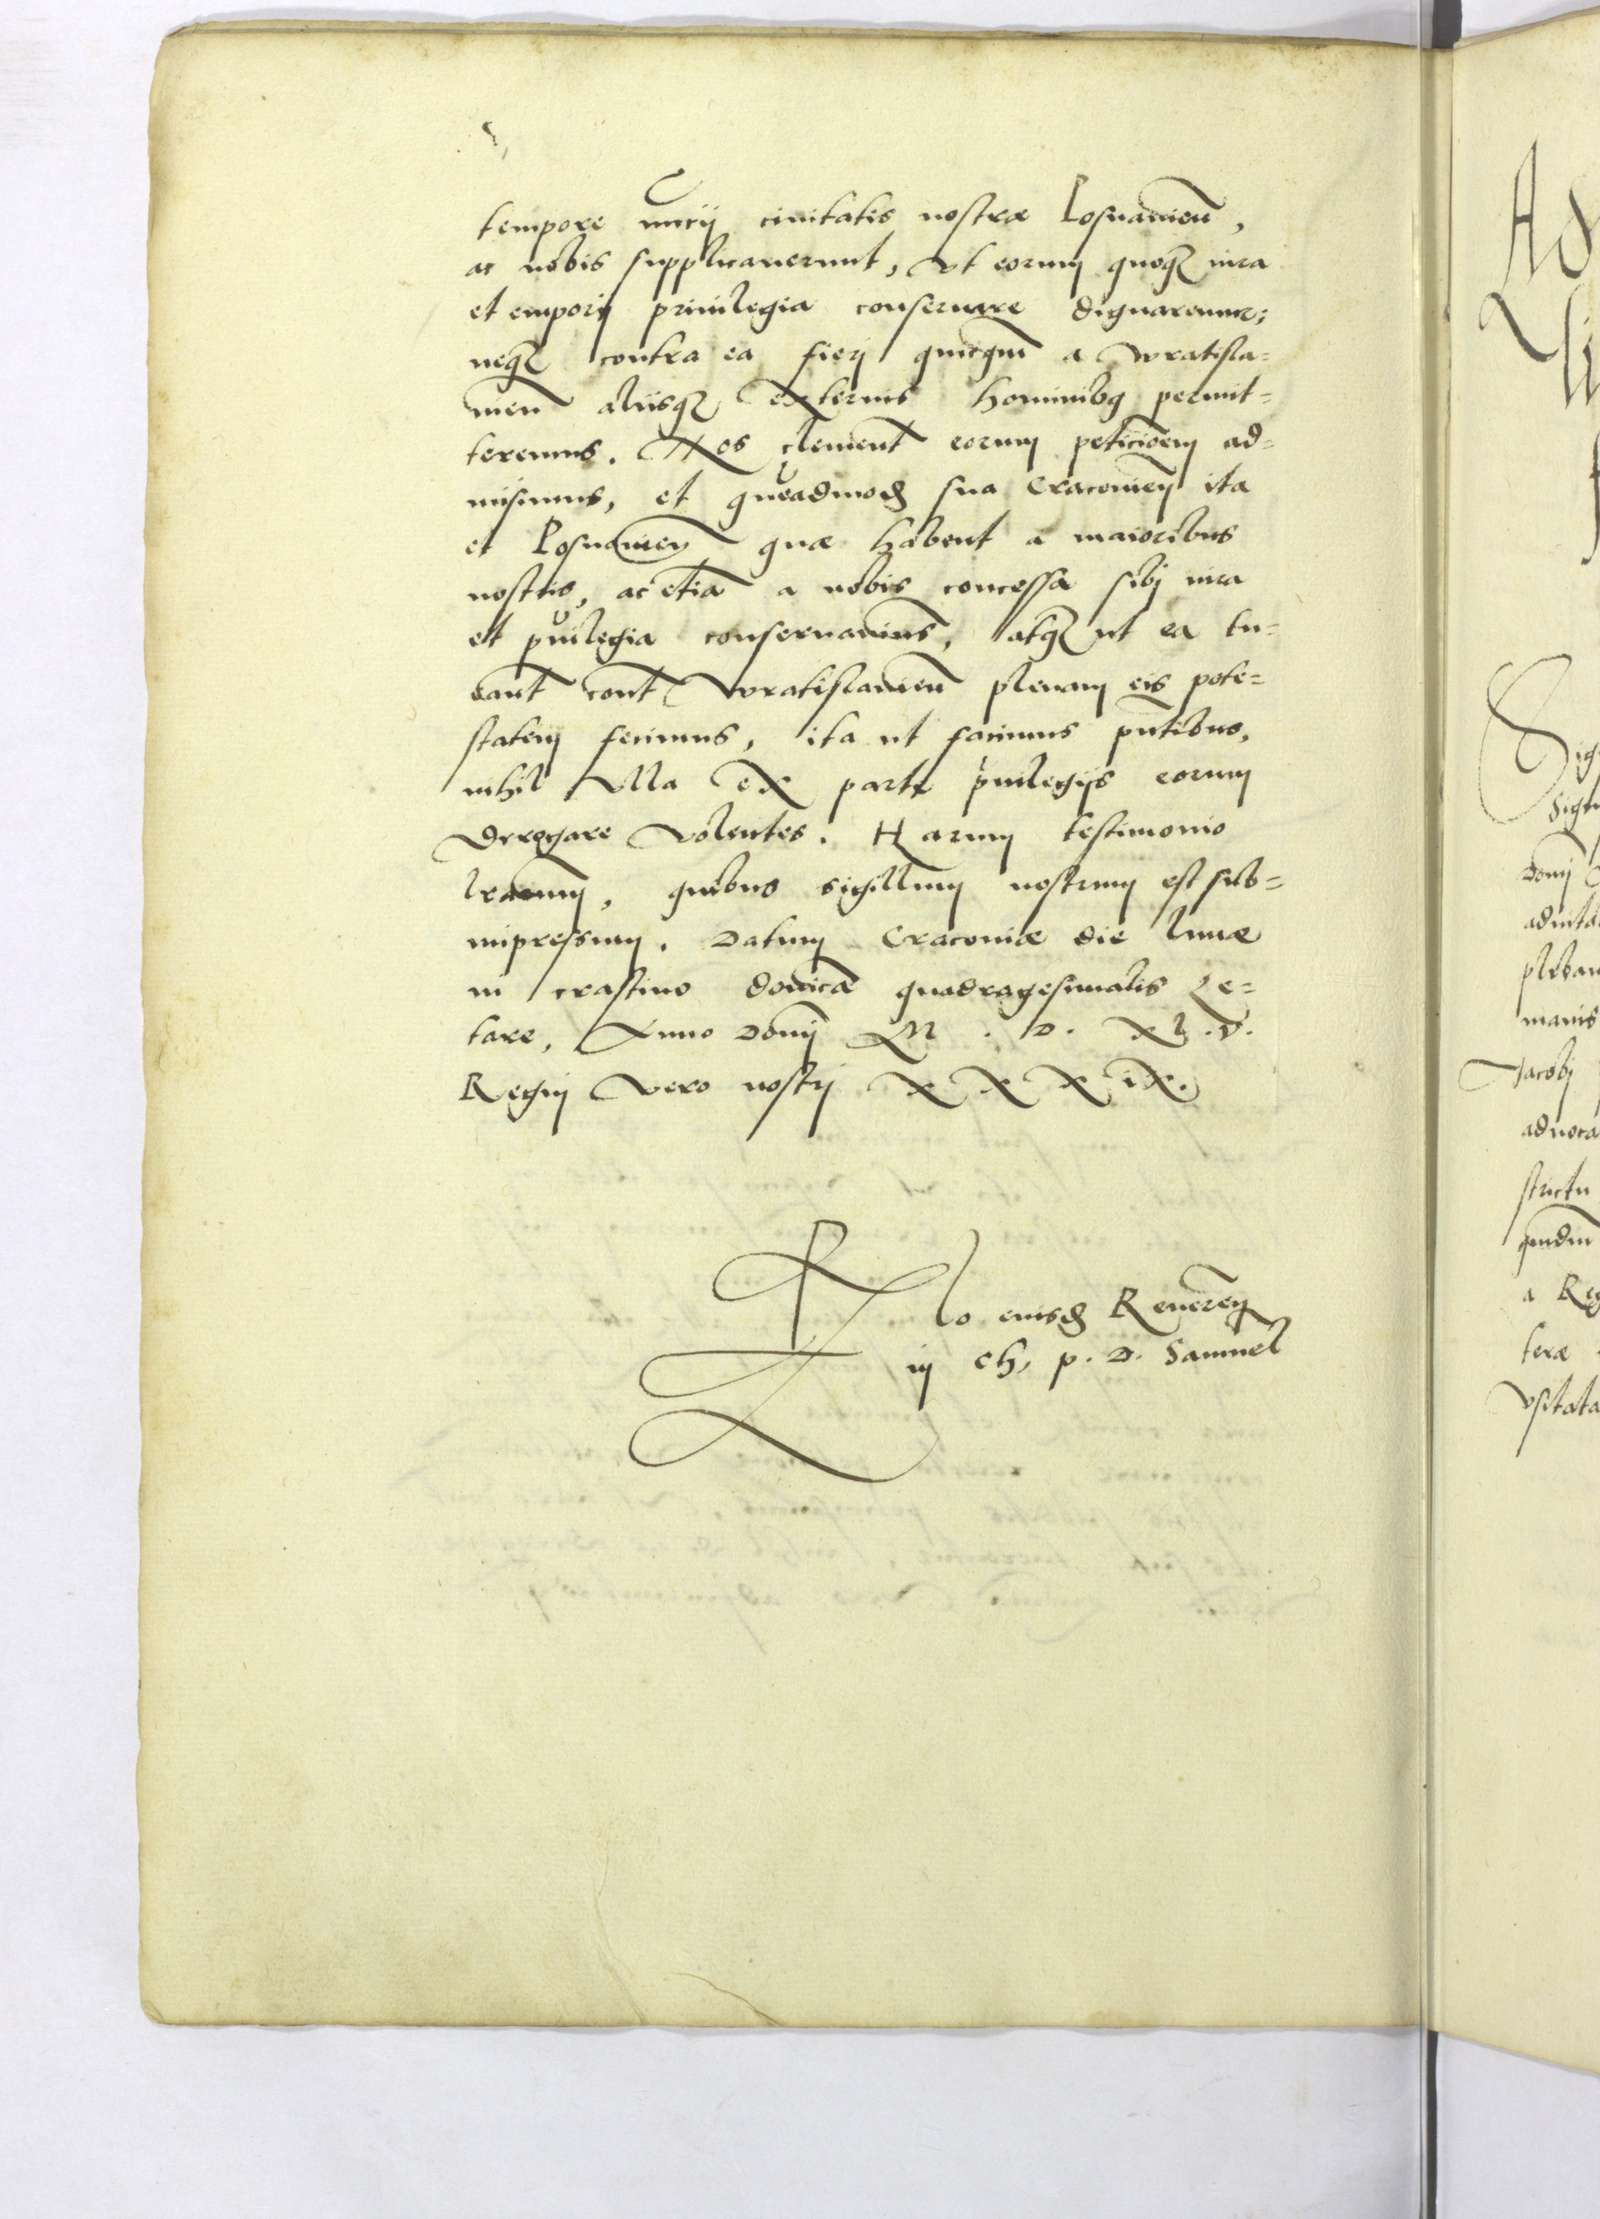 tempore nuncij ciuitatis nostræ Posnanień,
ac nobis supplicauerunt, vt eorum quoqȝ iura
et emporij priuilegia conseruare dignaremur;
neqȝ contra ea fierj quicqua a Wratisla=
uień aliisqȝ externis hominibq permit=
teremus. Nos clement eorum peticioem ad=
misimus, et queadmod sua Cracouień ita
et Posnanień quæ habent a maioribus
nostris, ac etiā a nobis concessa sibj iura
et puilegia conseruauims, atqȝ ut ea tu=
eant cont Wratislauień plenam eis pote=
statem fecimus, ita ut facimus pntibus,
nihil vlla ex parte puilegijs eorum
derogare volentes. Harum testimonio
lrarum, quibus sigillum nostrum est sub=
impressum. Datum Cracouiæ die lunæ
in crastino dominicæ quadragesimalis Le=
tare, Anno Domj M . D . XL . V .
Regnj vero nostrj XXXIX.
Rlo eiusd Reuerendj
in Ch. p. D. Samuel
Ad
Sig
Sigis
Domj
aduita
pleban
manis
Jacobj
aduoca
strictu
quidm
a Reg
teræ
vsitata